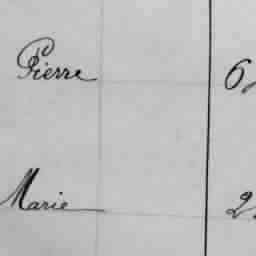 Pierre 6
Marie 2